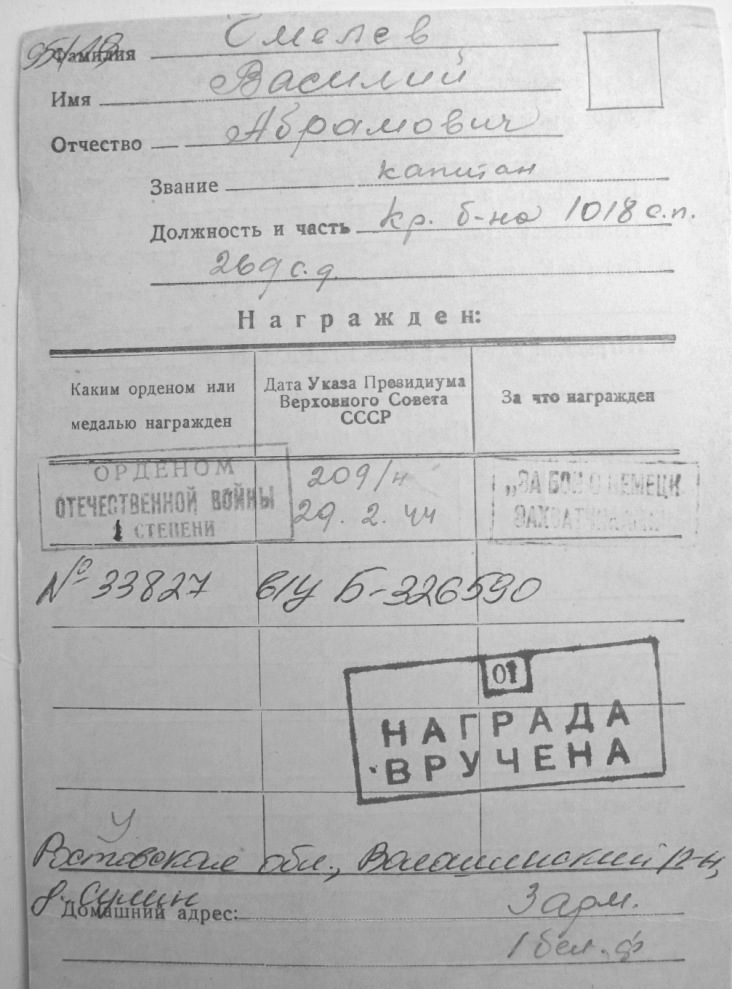 95/49
Фамилия Смелев
Имя Василий
Отчество Абрамович
Звание капитан
Должность и часть кр. б-на 1018 с.п.
269 с.д.
Награжден:
Каким орденом или медалью награжден
Дата Указа Президиума Верховного Совета СССР
За что награжден
ОРДЕНОМ
ОТЕЧЕСТВЕННОЙ ВОЙНЫ
1 СТЕПЕНИ
209/н
29. 2. 44
„ЗА БОИ С НЕМЕЦК
ЗАХВАТЧИКАМИ
№ 33827 в/у Б-326590
01
НАГРАДА
ВРУЧЕНА
У
Ростовская обл., р-н,
д. Сулин
Домашний адрес: 3 арм.
1 бел. ф